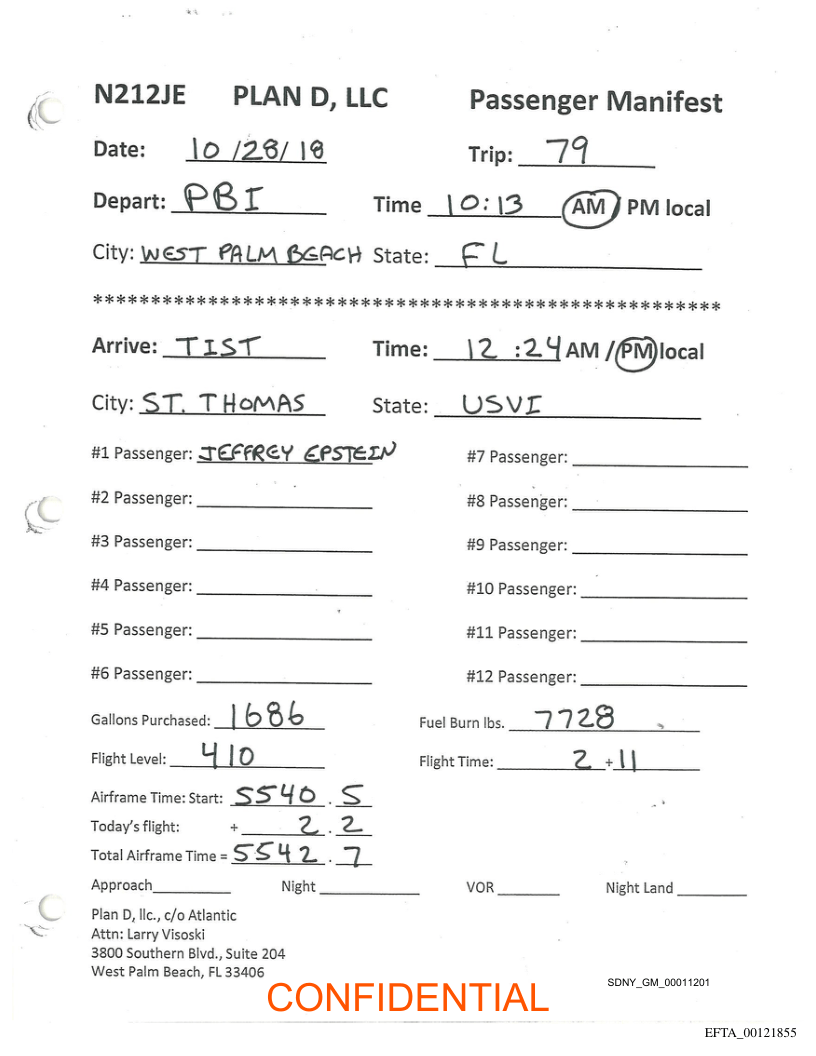 N212JE PLAN D, LLC Passenger Manifest
Date: 10/28/18 Trip: 79
Depart: PBI Time 10:13 AM / PM local
City: WEST PALM BEACH State: FL
******************************************************
Arrive: TIST Time: 12:24 AM / PM local
City: ST. THOMAS State: USVI
#1 Passenger: JEFFREY EPSTEIN #7 Passenger:
#2 Passenger: #8 Passenger:
#3 Passenger: #9 Passenger:
#4 Passenger: #10 Passenger:
#5 Passenger: #11 Passenger:
#6 Passenger: #12 Passenger:
Gallons Purchased: 1686 Fuel Burn lbs. 7728
Flight Level: 410 Flight Time: 2 + 11
Airframe Time: Start: 5540.5
Today's flight: + 2.2
Total Airframe Time = 5542.7
Approach Night VOR Night Land
Plan D, llc., c/o Atlantic
Attn: Larry Visoski
3800 Southern Blvd., Suite 204
West Palm Beach, FL 33406
SDNY_GM_00011201
CONFIDENTIAL
EFTA_00121855